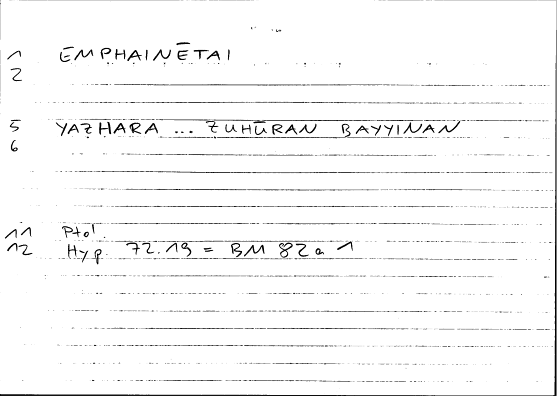 1 EMPHAINĒTAI
2
5 YAẒHARA ... ẒUHŪRAN BAYYINAN
6
11 Ptol.
12 Hyp. 72.19 = BM 82a 1